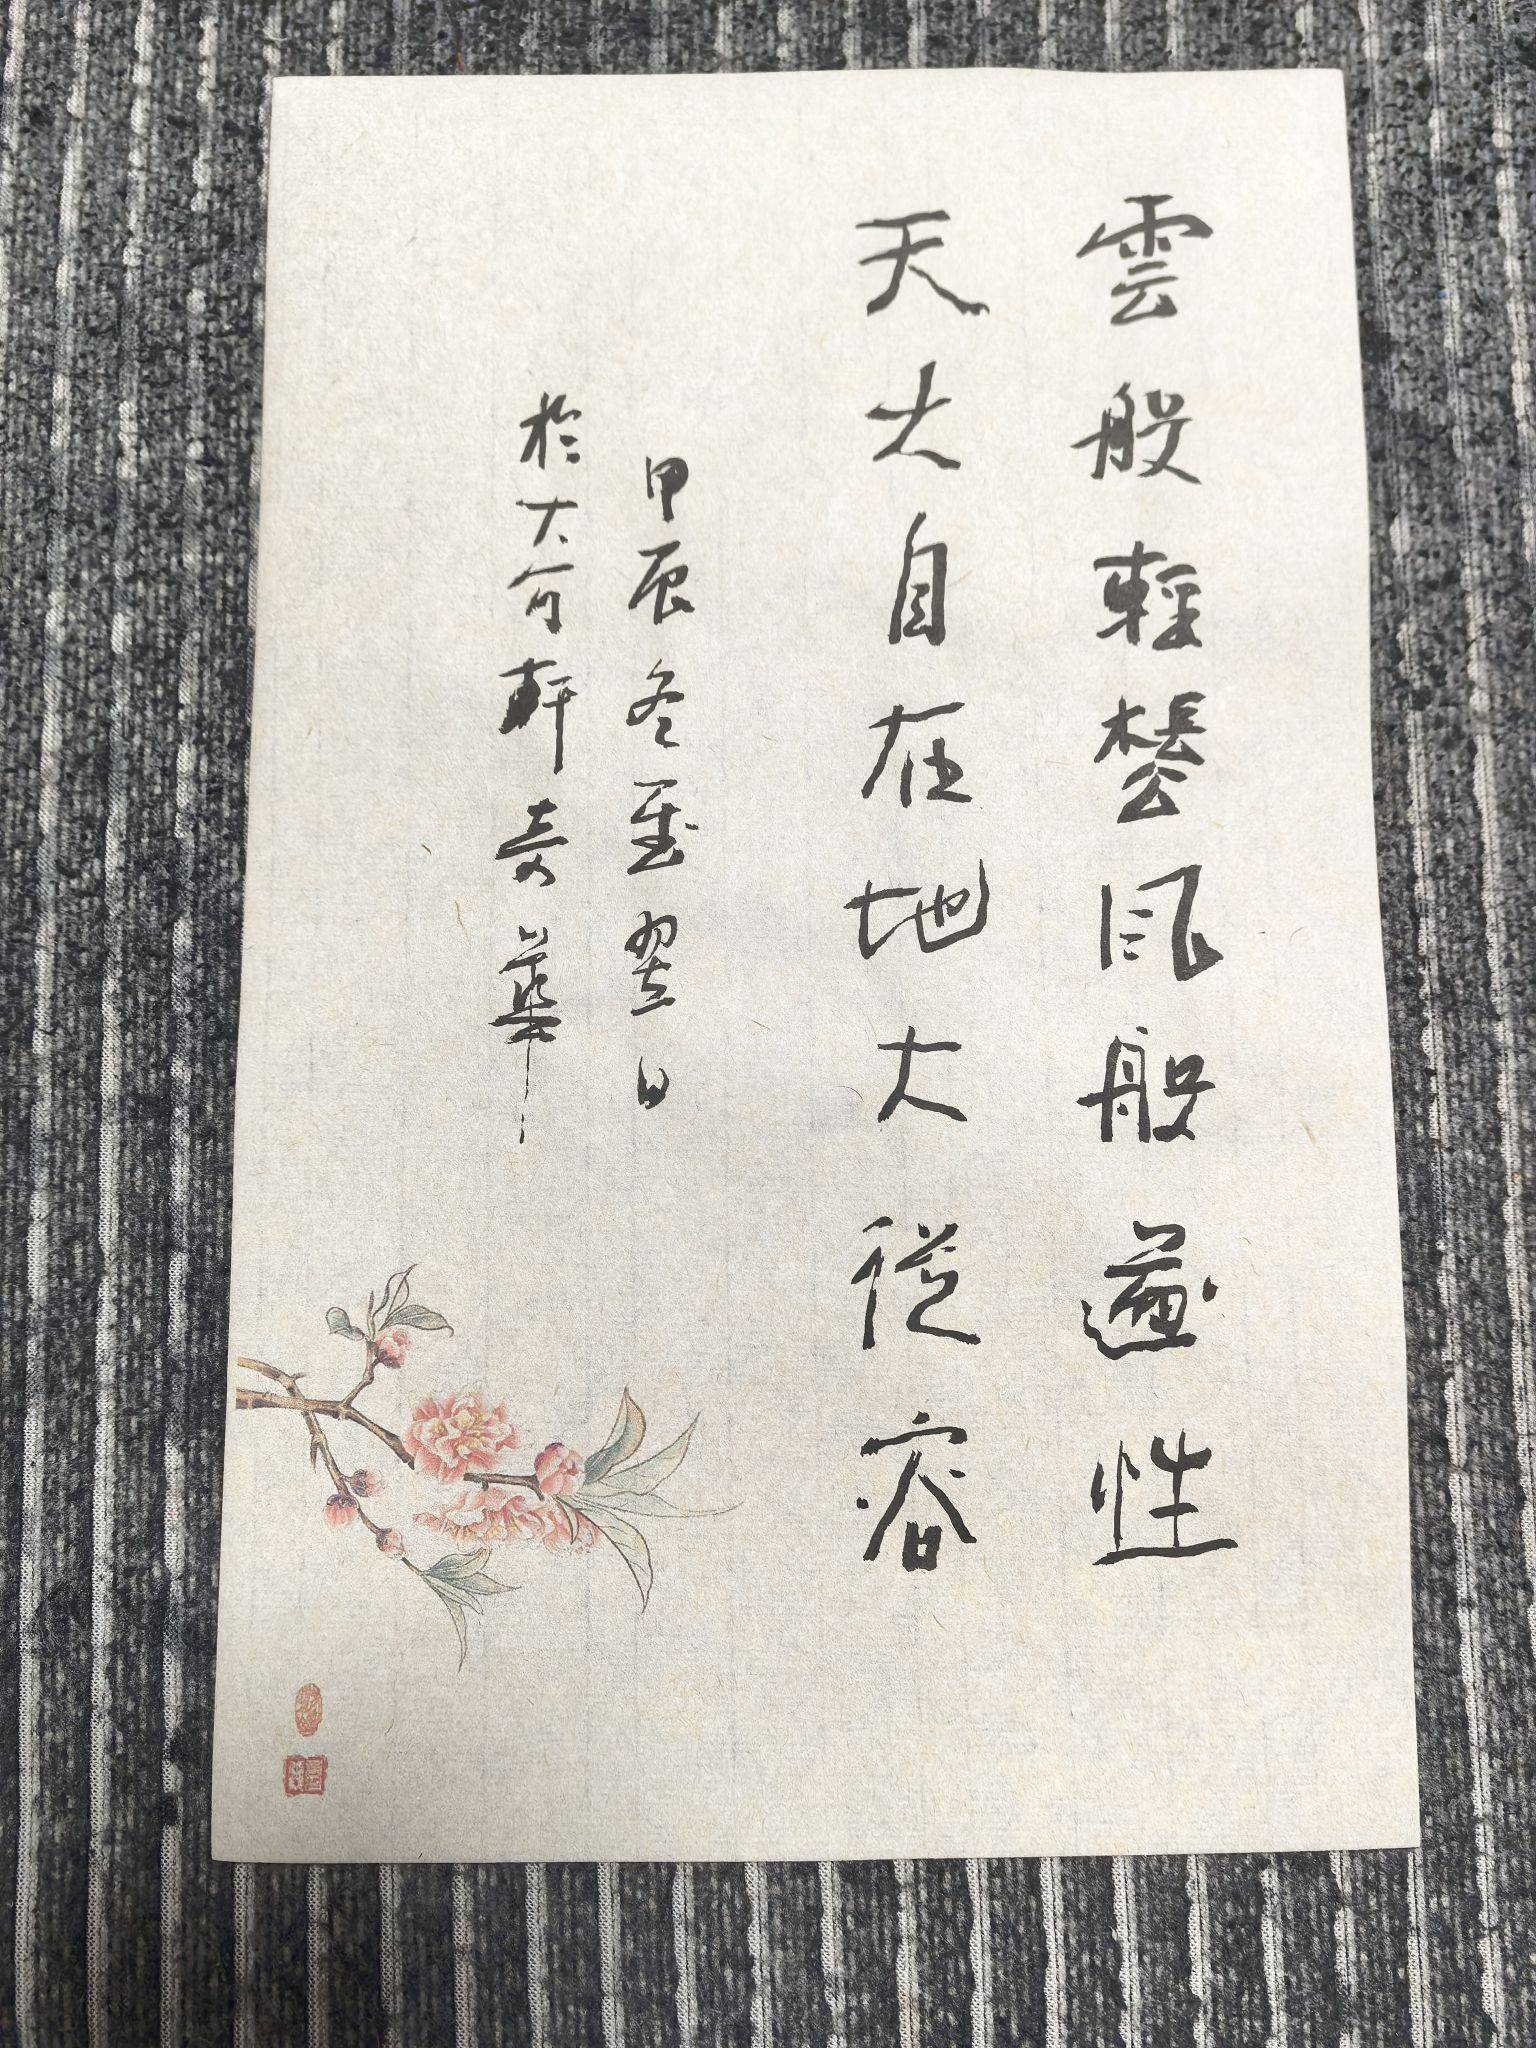 雲般輕鬆風般適性
天大自在地大從容
甲辰冬至翌日
於大可軒奇華